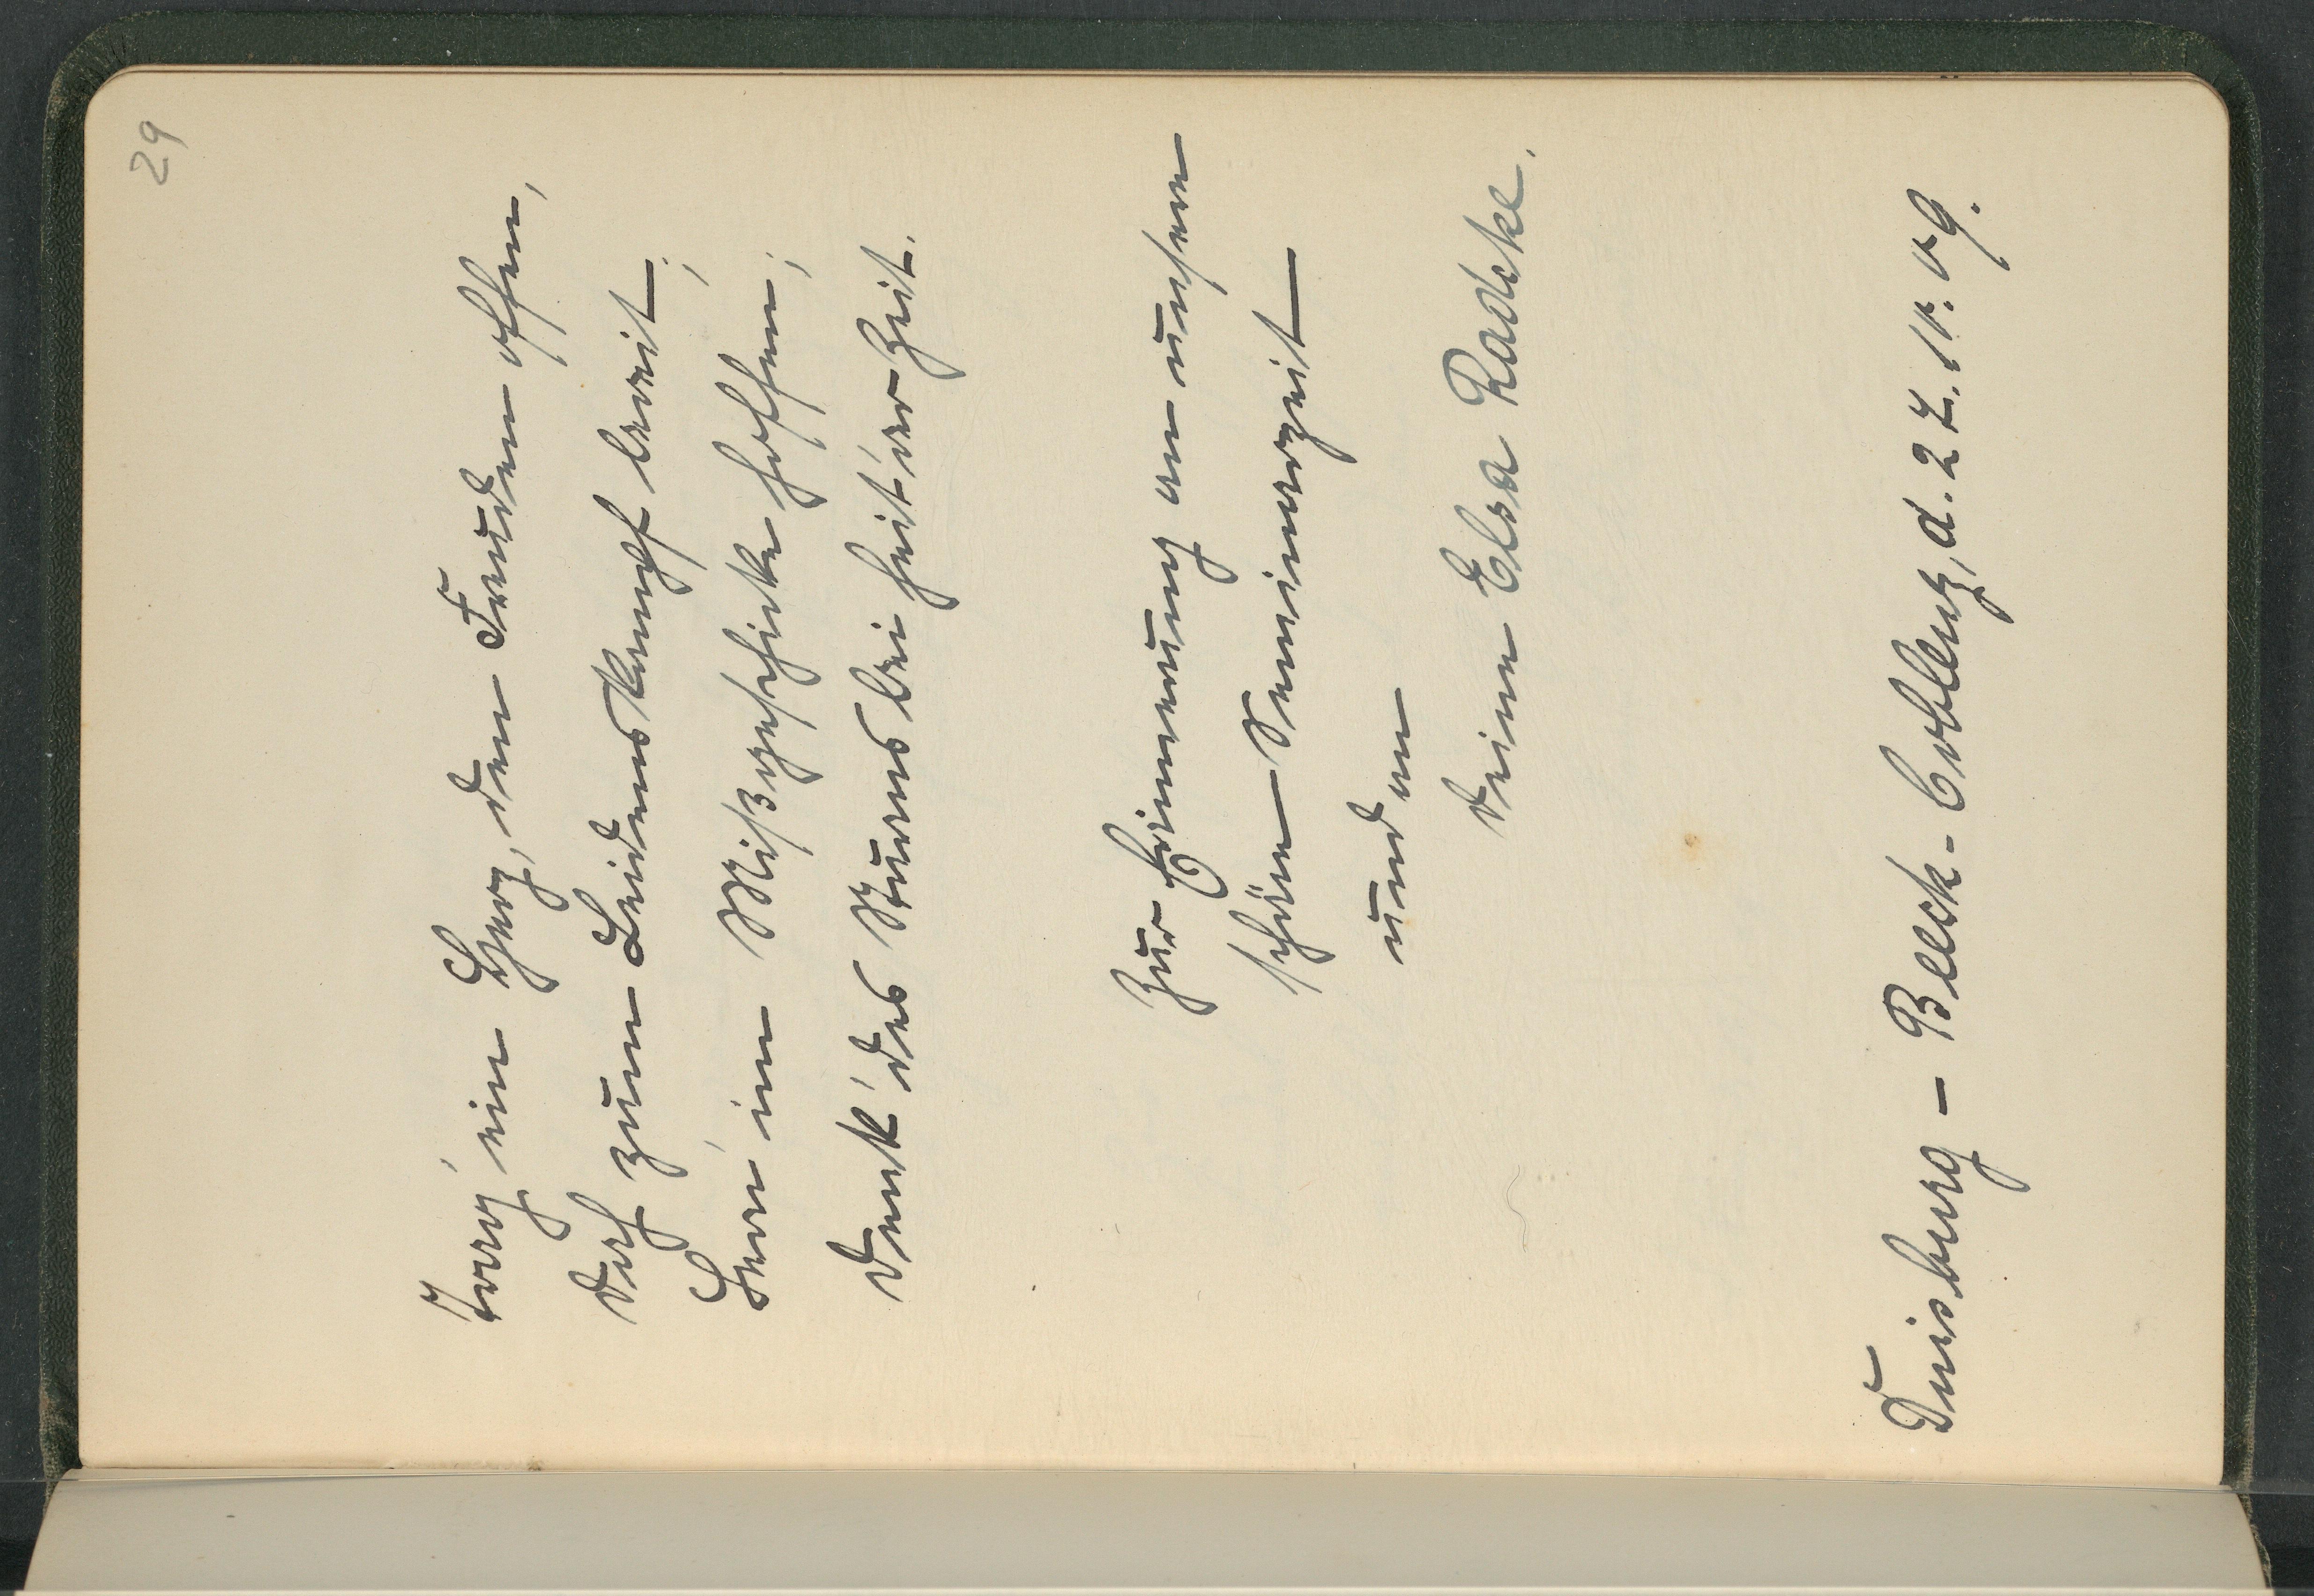 29
Trag' ein Herz, den Freuden offen,
Doch zum Leidenskampf bereit;
Lern' im Mißgeschicke hoffen;
Denk' des Sturms bei heit'rer Zeit.
Zur Erinnerung an unsere
schöne Seminarzeit
und an
Deine Elsa Radtke.
Duisburg - Beeck - Coblenz, d. 22. 10. 09.